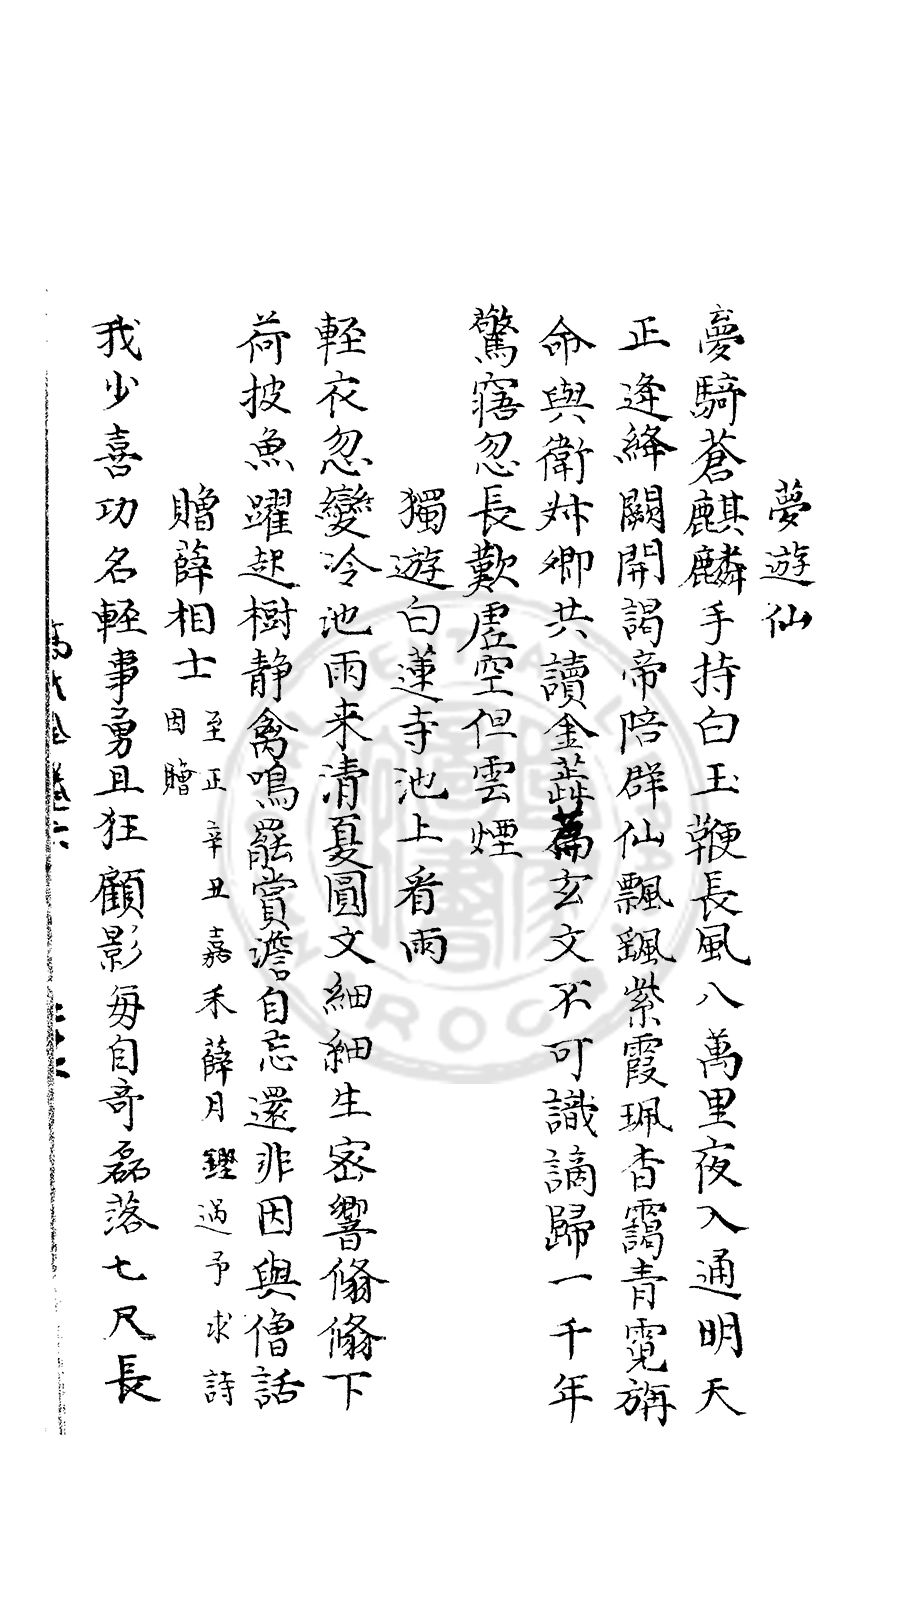 夢遊仙
夢騎蒼麒麟手持白玉鞭長風八萬里夜入通明天
正逢絳闕開謁帝陪群仙飄飄紫霞珮杳靄青霓旃
命與衛叔卿共讀金蕋篇玄文不可識謫歸一千年
驚寤忽長歎虛空但雲煙
獨遊白蓮寺池上看雨
輕衣忽變冷池雨来清夏圓文細細生密響翛翛下
荷披魚躍起樹静禽鳴罷賞澹自忘還非因與僧話
贈薛相士
至正辛丑嘉禾薛月鑑過予求詩
因贈
我少喜功名輕事勇且狂顧影每自奇磊落七尺長